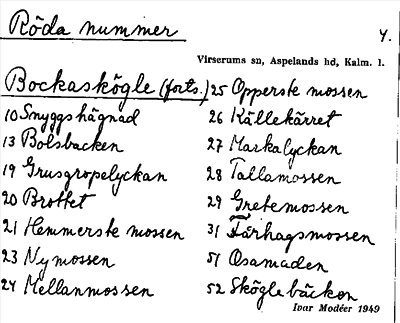 Röda nummer
4.
Virserums sn, Aspelands hd, Kalm. l.
Bockaskögle (forts.)
10 Snyggshägnad
13 Bolsbacken
19 Grusgropelyckan
20 Brottet
21 Hemmerste mossen
23 Nymossen
24 Mellanmossen
25 Opperste mossen
26 Källekärret
27 Markalyckan
28 Tallamossen
29 Gretemossen
31 Fårhagsmossen
51 Osamaden
52 Sköglebäcken
Ivar Modéer 1949